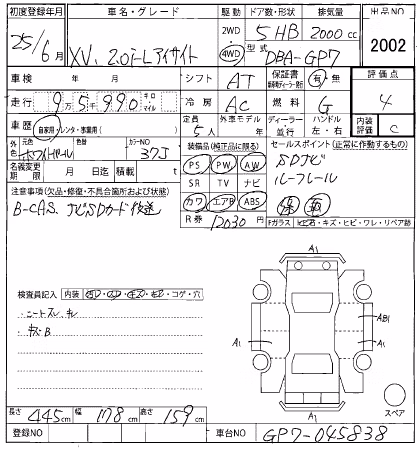 初度登録年月 車名・グレード 駆動 ドア数・形状 排気量 出品NO
25/6月 XV. 2.0i-Lアイサイト 2WD 4WD 5HB 2000cc 2002
型式 DBA-GP7
車検 年 月 シフト AT 保証書 有・無 評価点
走行 9万5千990 キロ マイル 冷房 AC 燃料 G 4
車歴 自家用・レンタ・事業用( ) 定員 5人 外車モデル 年 ディーラー 並行 ハンドル 左・右 内装評価 C
外色 元色 色替 カラーNO 37J
名義変更期限 月 日迄 積載 t
装備品(純正品に限る) セールスポイント(正常に作動するもの)
PS PW AW SDナビ
SR TV ナビ ルーフレール
カワ エアB ABS
R券 12030円
注意事項(欠品・修復・不具合箇所および状態)
B-CAS ナビSDカード後送
Fガラス ヒ石・キズ・ヒビ・ワレ・リペア跡
検査員記入 内装 コゲ・穴
・シートスレ
・キズB
A1
A1
AB1
A1
A1
スペア
長さ 445cm 幅 178cm 高さ 159cm
登録NO 車台NO GP7-045838